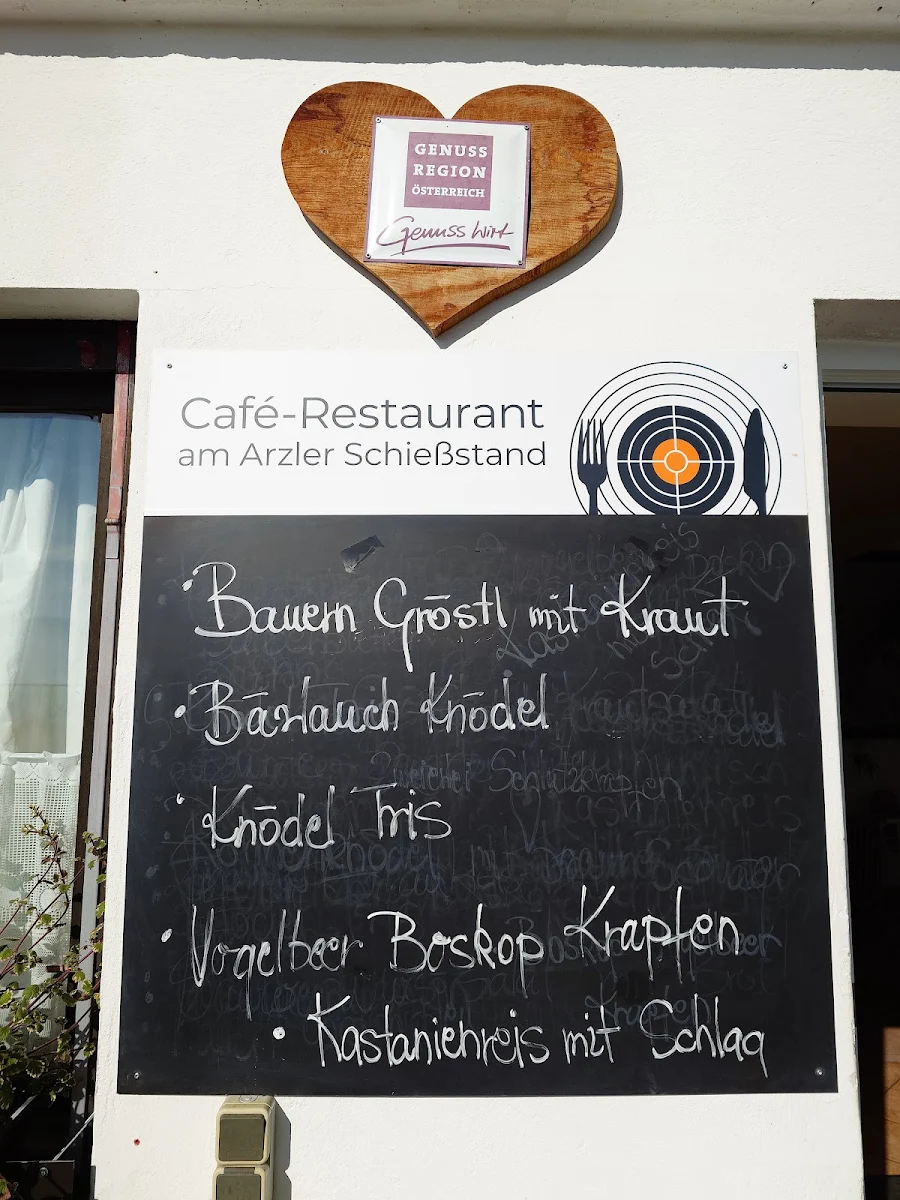 GENUSS
REGION
ÖSTERREICH
Genuss Wirt
Café-Restaurant
am Arzler Schießstand
• Bauern Gröstl mit Kraut
• Bärlauch Knödel
• Knödel Tris
• Vogelbeer Boskop Krapfen
• Kastanienreis mit Schlag